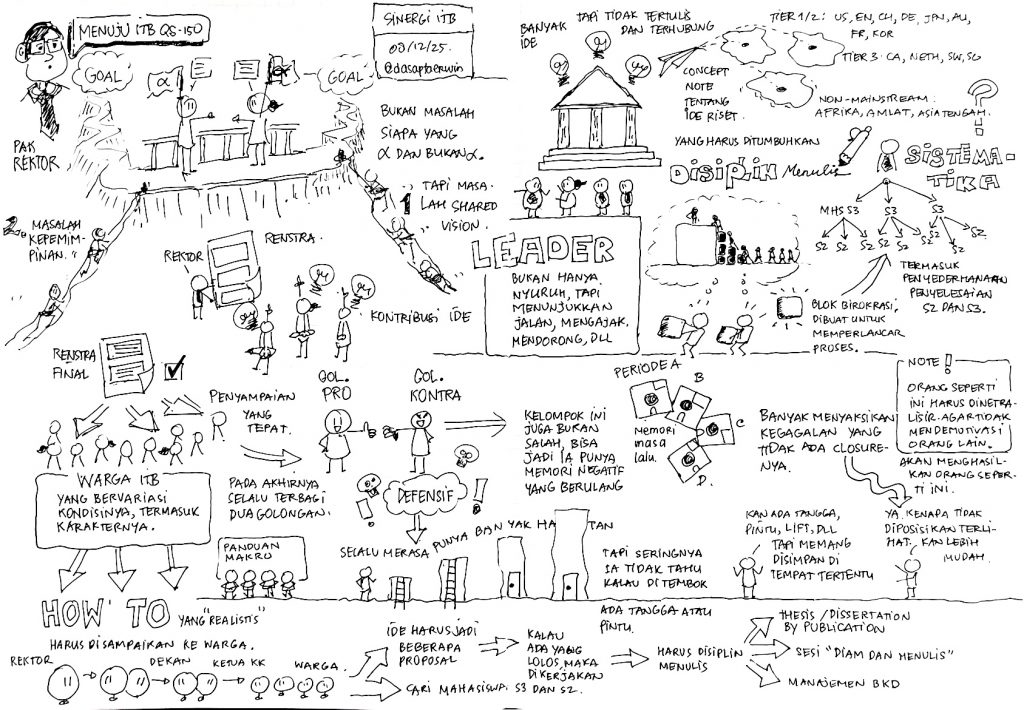 MENUJU ITB QS-150
PAK
REKTOR
GOAL
α
α
GOAL
SINERGI ITB
03/12/25.
@dasaptaerwin
BUKAN MASALAH
SIAPA YANG
α DAN BUKAN α.
1 TAPI MASA-
LAH SHARED
VISION.
2. MASALAH
KEPEMIM-
PINAN.
BANYAK
IDE
TAPI TIDAK TERTULIS
DAN TERHUBUNG
CONCEPT
NOTE
TENTANG
IDE RISET.
TIER 1/2 : US, EN, CH, DE, JPN, AU,
FR, KOR
TIER 3 : CA, NETH, SW, SG
NON-MAINSTREAM :
AFRIKA, AMLAT, ASIA TENGAH.
?
YANG HARUS DITUMBUHKAN
DISIPLIN Menulis
SISTEMA-
TIKA
MHS S3
S3
S3
S2
S2
S2
S2
S2
S2
TERMASUK
PENYEDERHANAAN
PENYELESAIAN
S2 DAN S3.
BLOK BIROKRASI,
DIBUAT UNTUK
MEMPERLANCAR
PROSES.
LEADER
BUKAN HANYA
NYURUH, TAPI
MENUNJUKKAN
JALAN, MENGAJAK,
MENDORONG, DLL
REKTOR
RENSTRA.
KONTRIBUSI IDE
RENSTRA
FINAL
PENYAMPAIAN
YANG
TEPAT.
WARGA ITB
YANG BERVARIASI
KONDISINYA, TERMASUK
KARAKTERNYA.
PADA AKHIRNYA
SELALU TERBAGI
DUA GOLONGAN.
GOL.
PRO
GOL.
KONTRA
DEFENSIF
!
!
KELOMPOK INI
JUGA BUKAN
SALAH, BISA
JADI IA PUNYA
MEMORI NEGATIF
YANG BERULANG
PERIODE A
B
C
D.
Memori
masa
lalu.
BANYAK MENYAKSIKAN
KEGAGALAN YANG
TIDAK ADA CLOSURE-
NYA.
NOTE !
ORANG SEPERTI
INI HARUS DINETRA-
LISIR. AGAR TIDAK
MENDEMOTIVASI
ORANG LAIN.
AKAN MENGHASIL-
KAN ORANG SEPER-
TI INI.
PANDUAN
MAKRO
SELALU MERASA PUNYA BANYAK HA TAN
TAPI SERINGNYA
IA TIDAK TAHU
KALAU DI TEMBOK
ADA TANGGA ATAU
PINTU.
KAN ADA TANGGA,
PINTU, LIFT, DLL
TAPI MEMANG
DISIMPAN DI
TEMPAT TERTENTU
YA, KENAPA TIDAK
DIPOSISIKAN TERLI-
HAT, KAN LEBIH
MUDAH.
HOW TO YANG "REALISTIS"
HARUS DISAMPAIKAN KE WARGA.
REKTOR
DEKAN
KETUA KK
WARGA.
IDE HARUS JADI
BEBERAPA
PROPOSAL
CARI MAHASISWA S3 DAN S2.
KALAU
ADA YANG
LOLOS, MAKA
DIKERJAKAN
HARUS DISIPLIN
MENULIS
THESIS / DISSERTATION
BY PUBLICATION
SESI "DIAM DAN MENULIS"
MANAJEMEN BKD